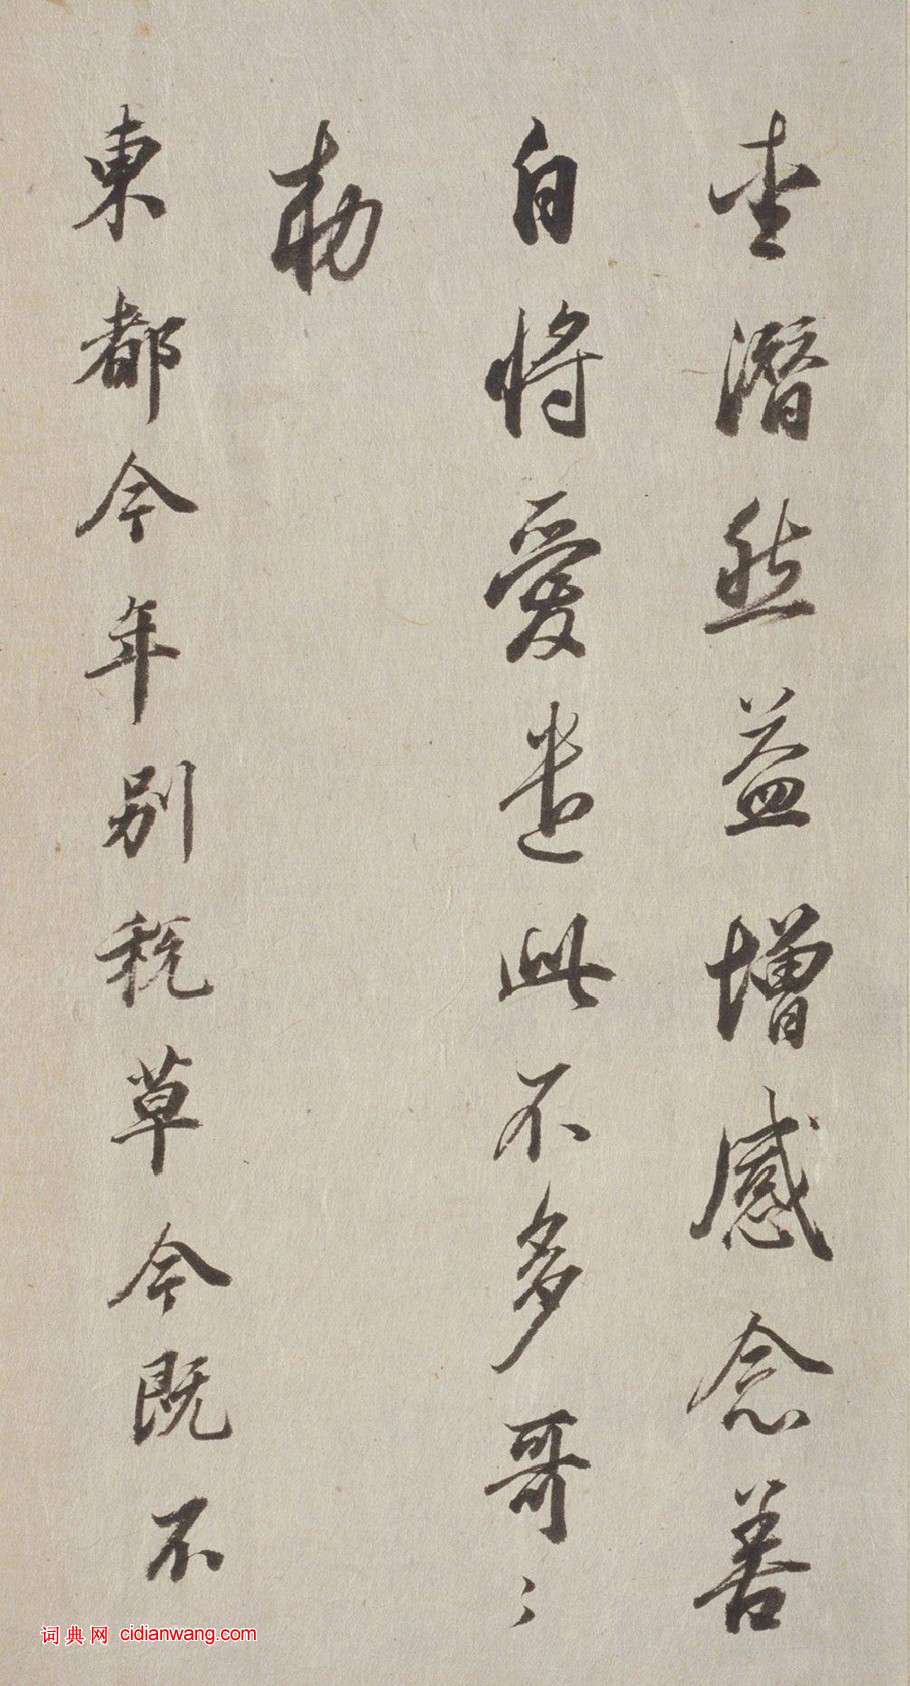 潛然益增感念善
自将愛遣此不多哥〻
勅
東都今年別稅草今既不
词典网 cidianwang.com